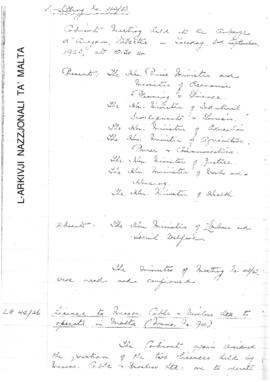 L-ARKIVJI NAZZJONALI TA' MALTA
Cabinet Meeting held at the Auberge
d'Aragon, Valletta on Tuesday, 2nd September,
at 10.30 am
Present: The Hon. Prime Minister and
Minister of Economic
Planning & Finance
The Hon. Minister of Industrial
Development & Tourism
The Hon. Minister of Education
The Hon. Minister of Agriculture,
Power & Communications
The Hon. Minister of Justice
The Hon. Minister of Works and
Housing
The Hon. Minister of Health
Absent: The Hon. Minister of Labour and
Social Welfare
The Minutes of Meeting No.
were read and confirmed.
Licence to Messrs Cable & Wireless Ltd. to
operate in Malta
The Cabinet again considered
the position of the two licences held by
Messrs. Cable & Wireless Ltd.: one to